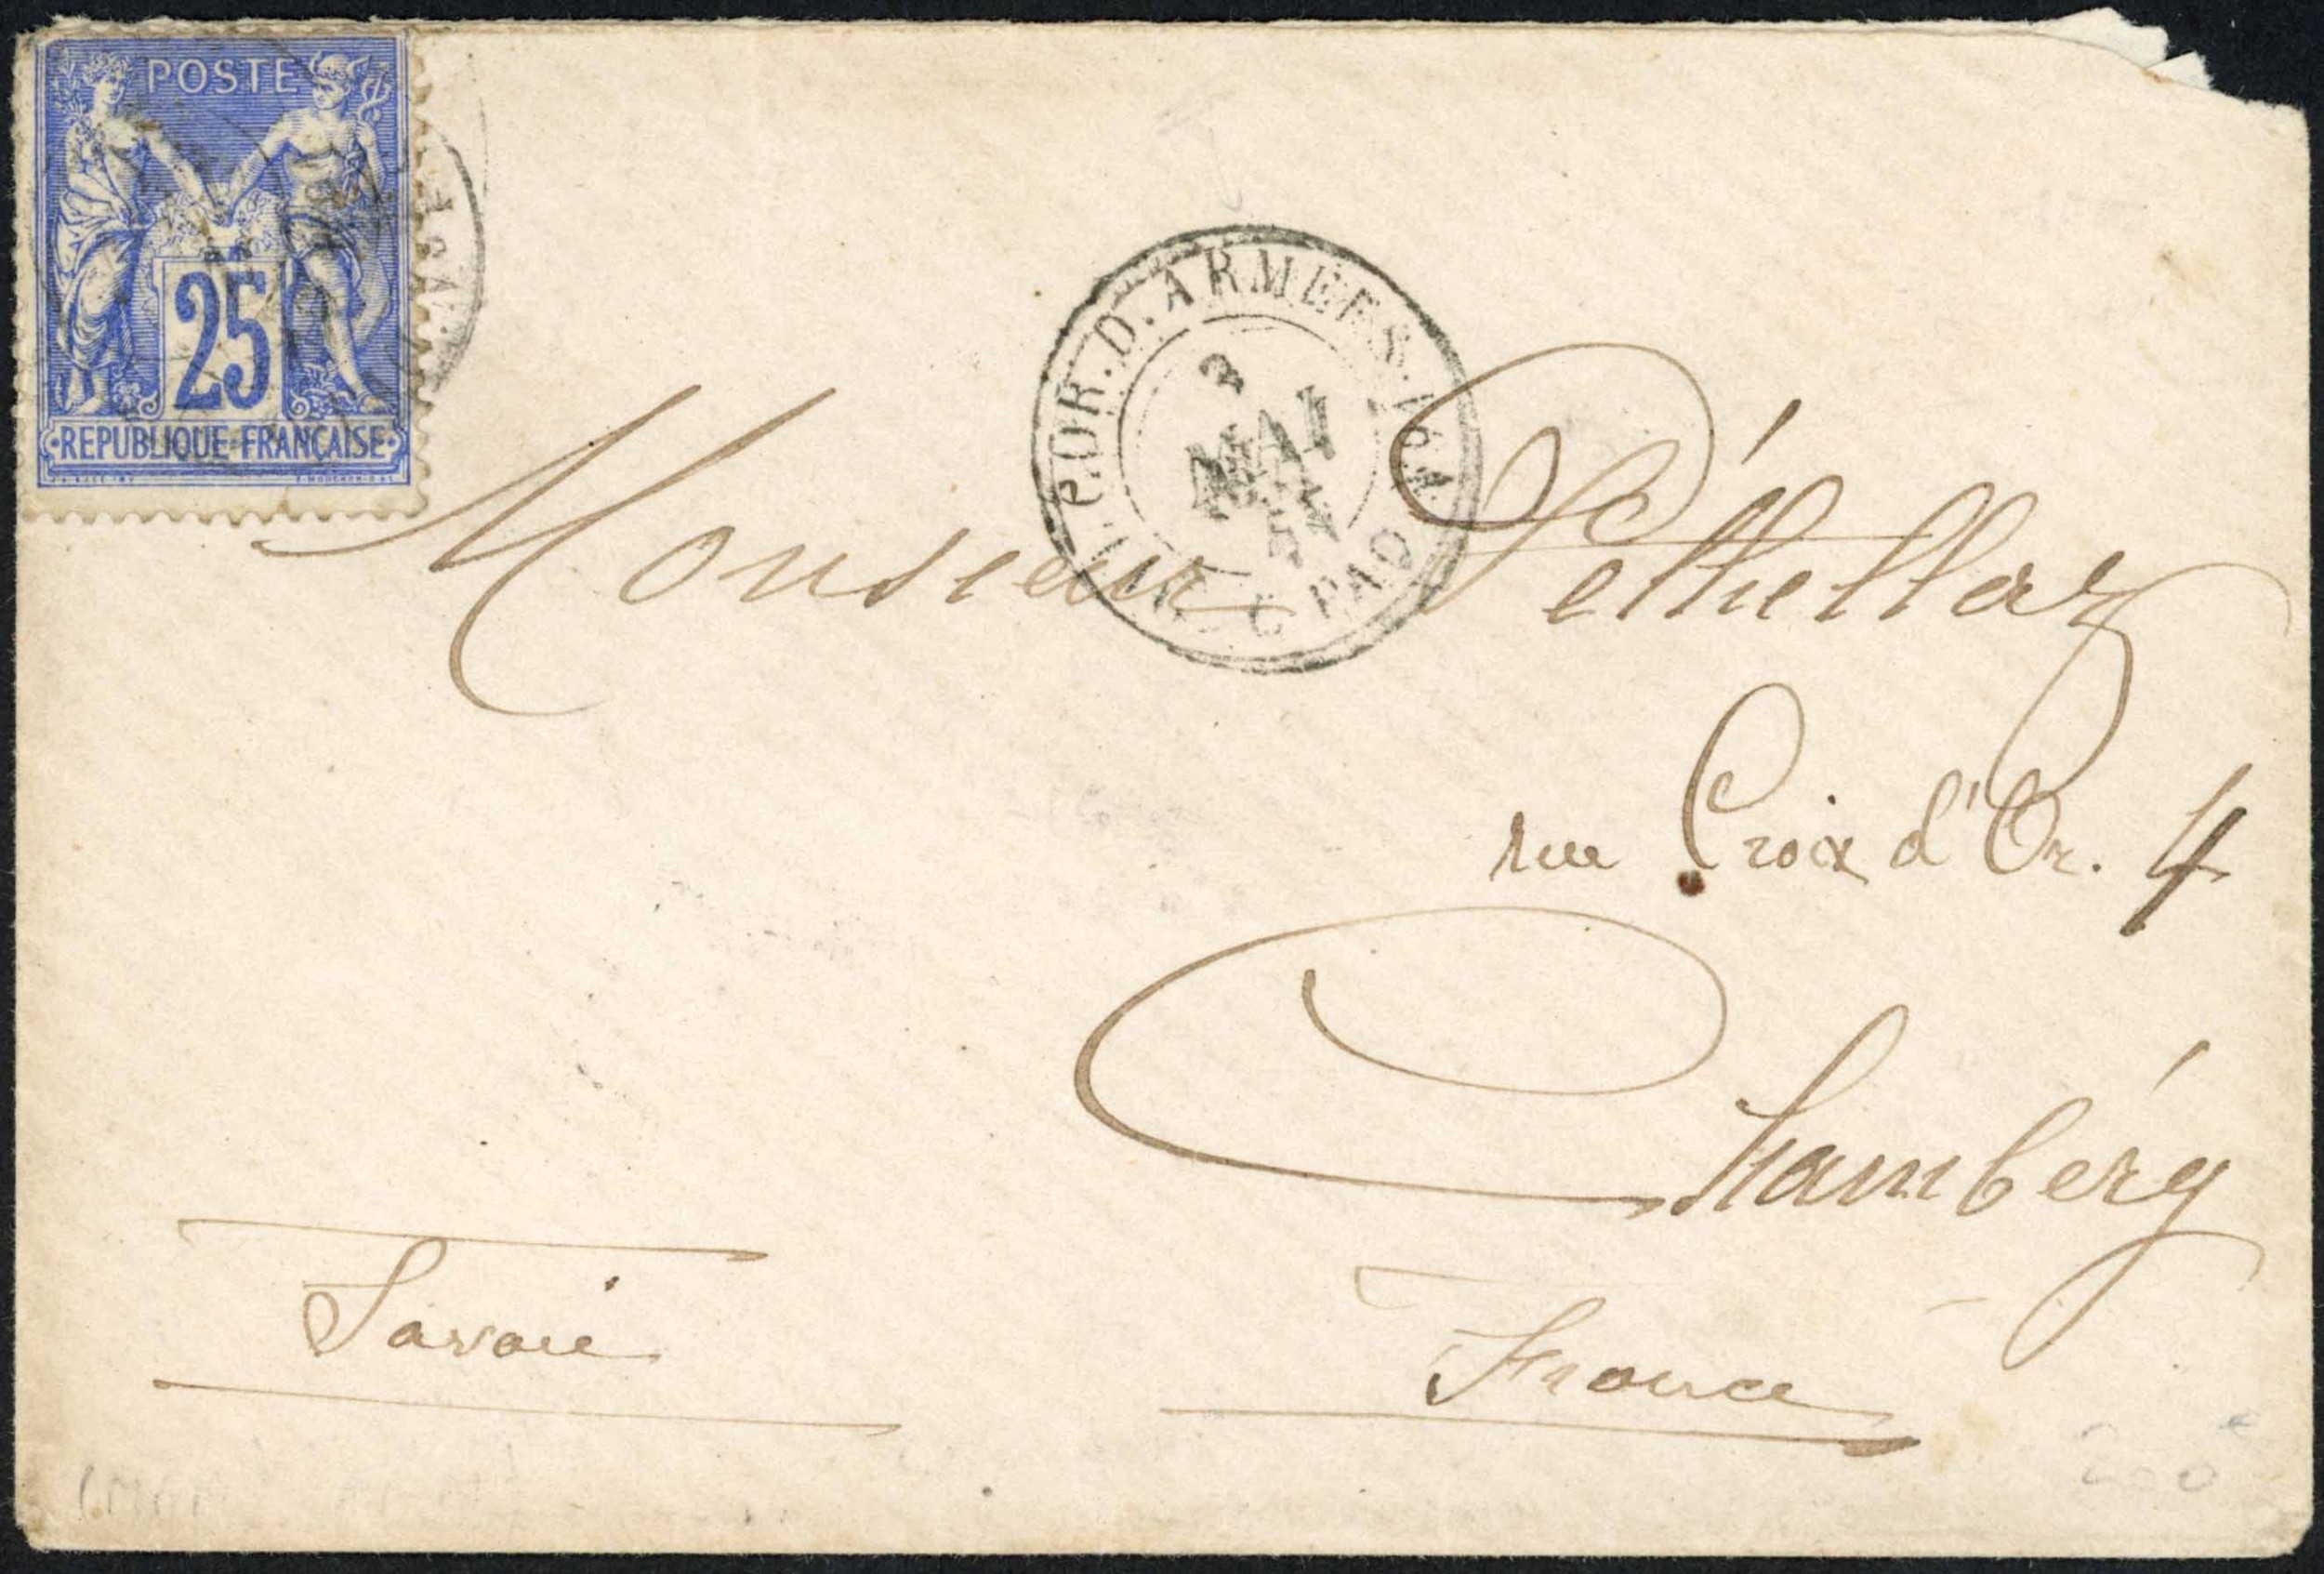 POSTE
25
REPUBLIQUE FRANÇAISE
COR. D. ARMÉES.
MAI
PAQ
Monsieur Péthellaz
rue Croix d'Or. 4
Chambéry
Savoie
France
200 €